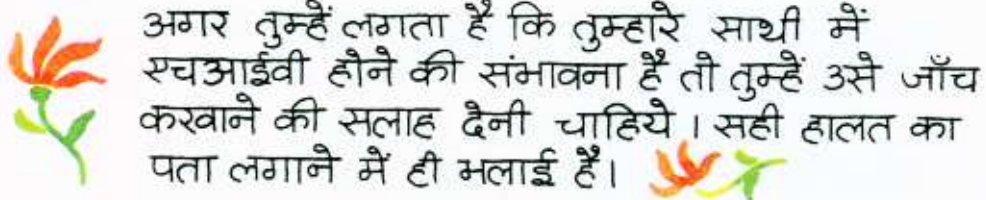 अगर तुम्हें लगता है कि तुम्हारे साथी में
एचआईवी होने की संभावना है तो तुम्हें उसे जाँच
करवाने की सलाह देनी चाहिये । सही हालत का
पता लगाने में ही भलाई है।